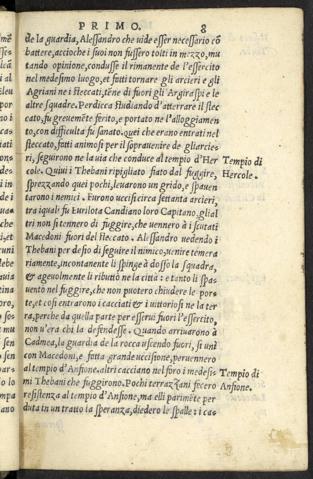 PRIMO. 8
de la guardia, Alessandro che uide esser necessario cõ
battere, accioche i suoi non fussero tolti in mezzo, mu
tando opinione, condusse il rimanente de l'essercito
nel medesimo luogo, et fatti tornare gli arcieri e gli
Agriani ne i steccati, tẽne di fuori gli Argiraspi e le
altre squadre. Perdicca studiando d'atterrare il stec
cato, fu greuemẽte ferito, e portato ne l'alloggiamen
to, con difficulta fu sanato. quei che erano entrati nel
steccato, fatti animosi per il soprauenire de gli arcie-
ri, seguirono ne la uia che conduce al tempio d'Her
cole. Quiui i Thebani ripigliato fiato dal fuggire,
sprezzando quei pochi, leuarono un grido, e spauen
tarono i nemici. Furono uccisi circa settanta arcieri
tra iquali fu Eurilota Candiano loro Capitano, gli al
tri non si tennero di fuggire, che uennero à i scutati
Macedoni fuori del steccato. Alissandro uedendo i
Thebani per desio di seguire il nimico, uenire temera
riamente, incontanente li spinge à dosso la squadra,
& ageuolmente li ributtò ne la città: e tanto li spa-
uentò nel fuggire, che non puotero chiudere le por-
te, et cosi entrarono i cacciati & i uittoriosi ne la ter
ra, perche da quella parte per esserui fuori l'essercito,
non u'era chi la defendesse. Quando arriuarono à
Cadmea, la guardia de la rocca uscendo fuori, si unì
con Macedoni, e fatta grande uccisione, peruennero
al tempio d'Anfione. altri cacciano nel foro i medesi-
mi Thebani che fuggirono. Pochi terrazzani fecero
resistenza al tempio d'Anfione, ma elli parimẽte per
duta in un tratto la speranza, diedero le spalle: i cac
Tempio di
Hercole.
Tempio di
Anfione.